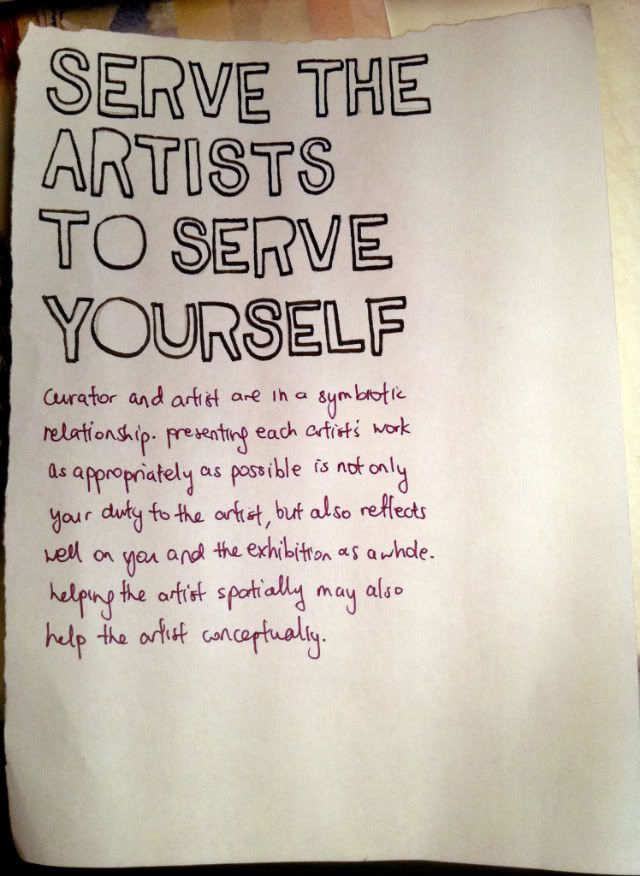 SERVE THE
ARTISTS
TO SERVE
YOURSELF
Curator and artist are in a symbiotic
relationship. presenting each artist's work
as appropriately as possible is not only
your duty to the artist, but also reflects
well on you and the exhibition as a whole.
helping the artist spatially may also
help the artist conceptually.